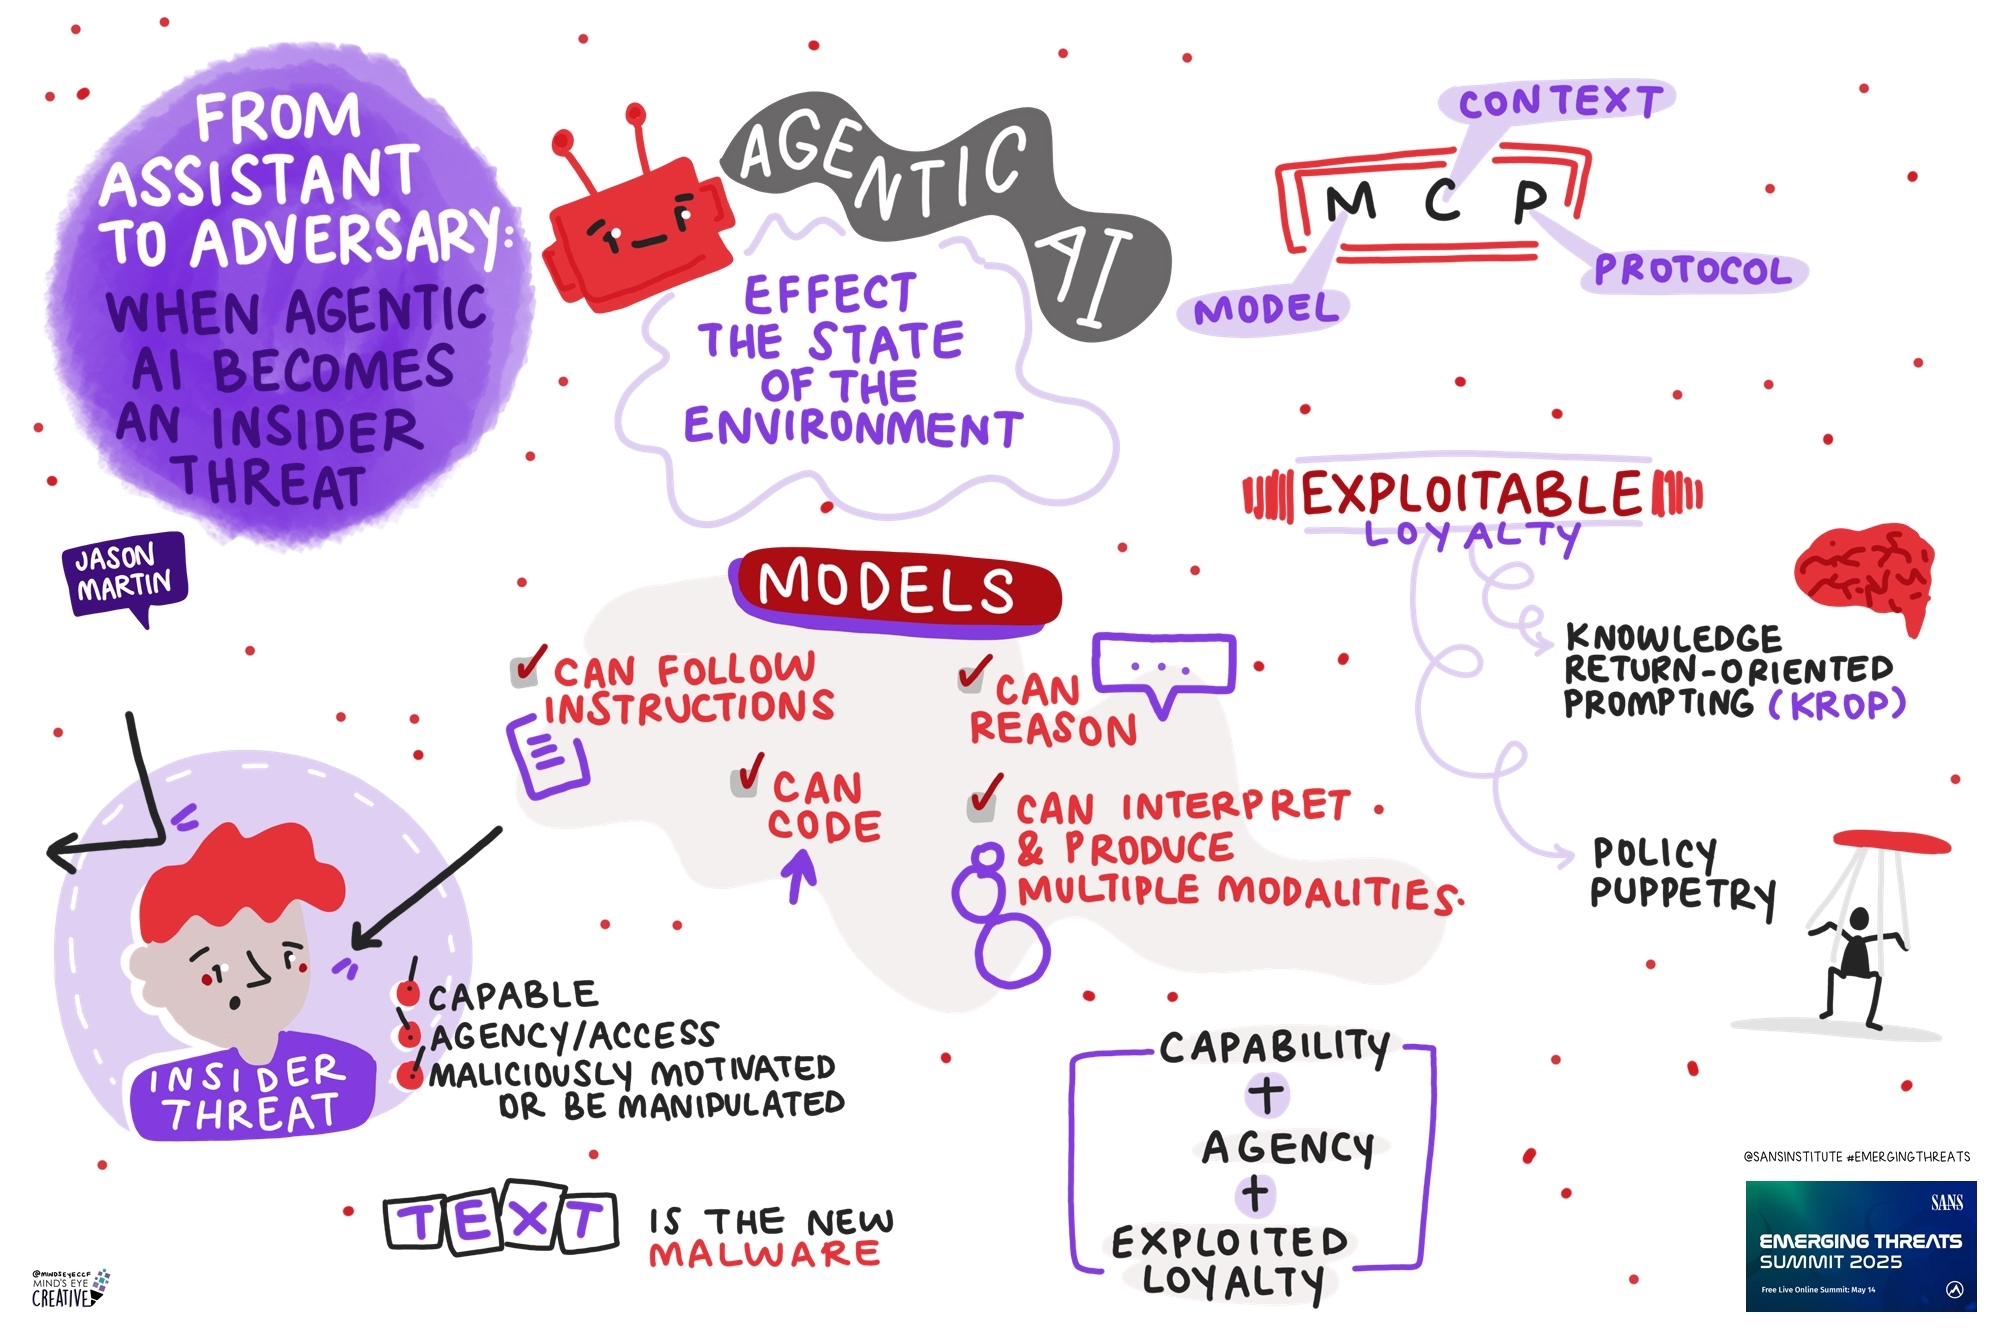 FROM
ASSISTANT
TO ADVERSARY:
WHEN AGENTIC
AI BECOMES
AN INSIDER
THREAT
JASON
MARTIN
AGENTIC
AI
EFFECT
THE STATE
OF THE
ENVIRONMENT
CONTEXT
M C P
PROTOCOL
MODEL
EXPLOITABLE
LOYALTY
KNOWLEDGE
RETURN-ORIENTED
PROMPTING (KROP)
POLICY
PUPPETRY
MODELS
CAN FOLLOW
INSTRUCTIONS
CAN
REASON
CAN
CODE
CAN INTERPRET
& PRODUCE
MULTIPLE MODALITIES.
INSIDER
THREAT
CAPABLE
AGENCY/ACCESS
MALICIOUSLY MOTIVATED
OR BE MANIPULATED
TEXT IS THE NEW
MALWARE
CAPABILITY
+
AGENCY
+
EXPLOITED
LOYALTY
@SANSINSTITUTE #EMERGINGTHREATS
SANS
EMERGING THREATS
SUMMIT 2025
Free Live Online Summit: May 14
@MINDSEYECCF
MIND'S EYE
CREATIVE